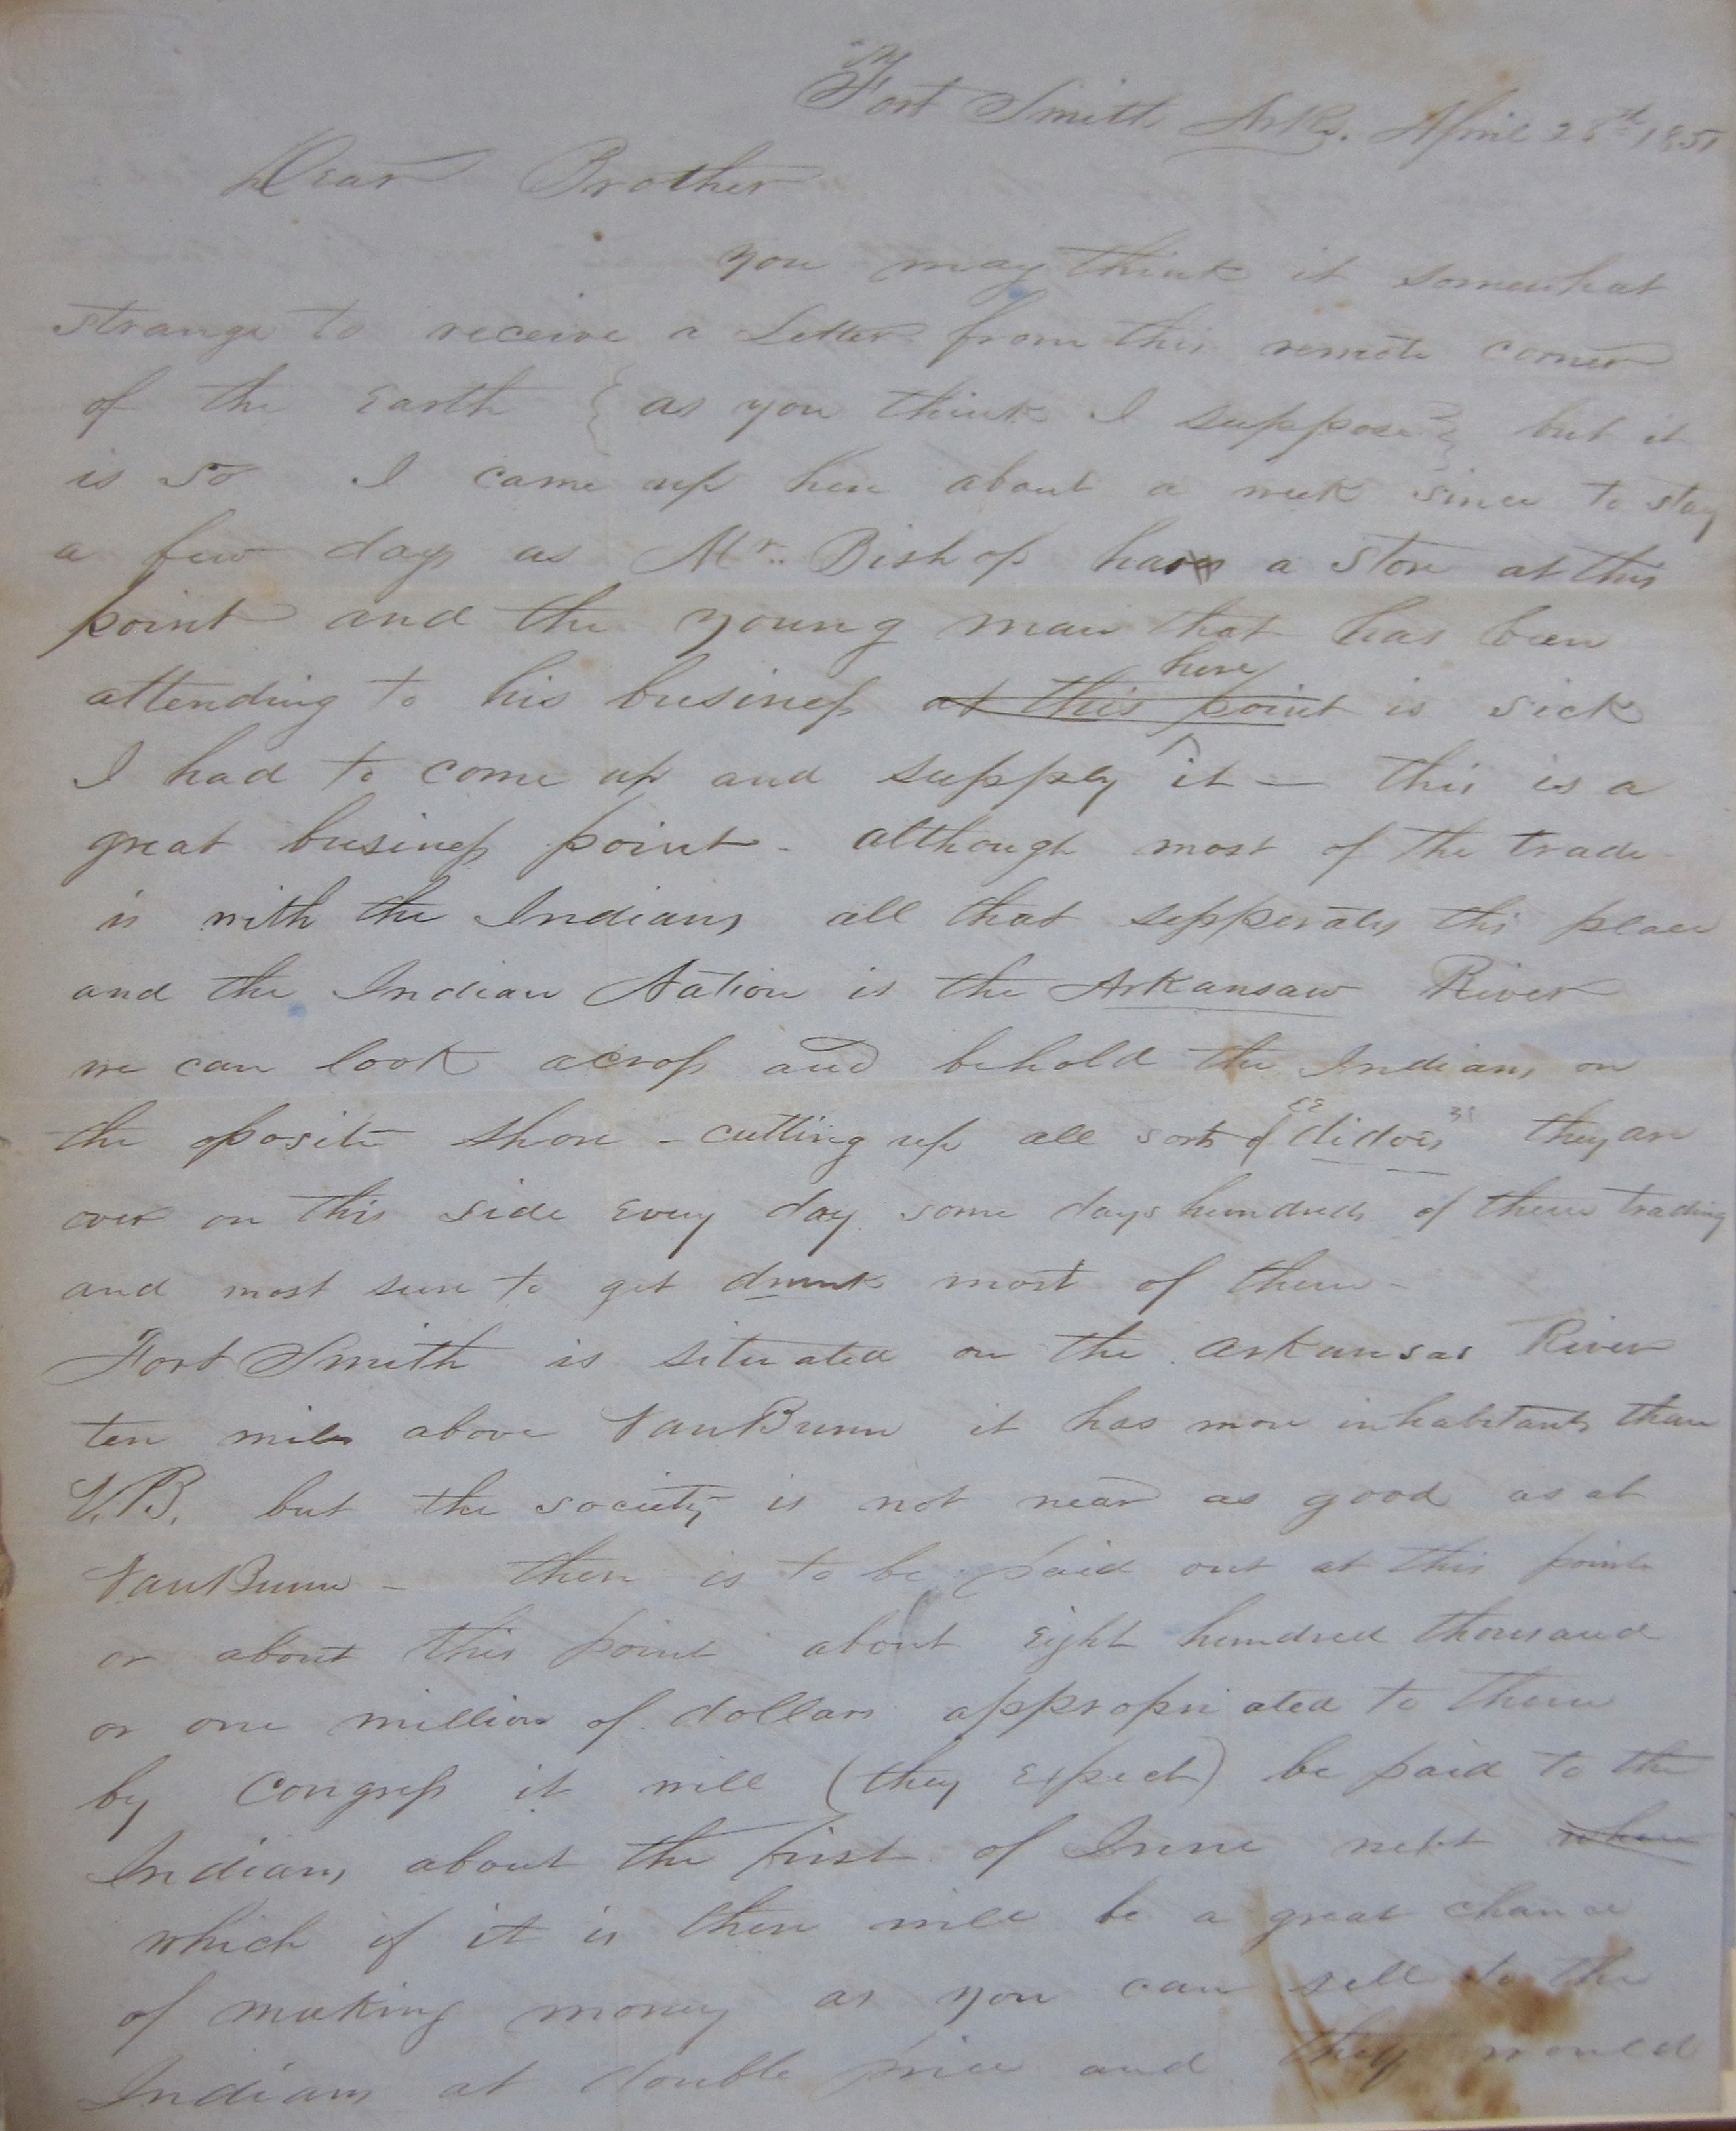 Fort Smith Arks. April 28th 1851
Dear Brother
you may think it somewhat
strange to receive a Letter from this remote corner
of the Earth { as you think I suppose } but it
is so I came up here about a week since to stay
a few days as Mr. Bishop has a store at this
point and the young man that has been
attending to his business at this point here is sick
I had to come up and supply it — this is a
great business point - although most of the trade
is with the Indians all that sepperates this place
and the Indian Nation is the Arkansaw River
we can look across and behold the Indians on
the oposite shore - cutting up all sorts of "didoes" they are
over on this side every day some days hundreds of them trading
and most sure to get drunk most of them -
Fort Smith is situated on the Arkansas River
ten miles above VanBuren it has more inhabitants than
V.B. but the society is not near as good as at
VanBuren - there is to be paid out at this point
or about this point about eight hundred thousand
or one million of dollars appropriated to them
by Congress it will (they expect) be paid to the
Indians about the first of June next when
which if it is there will be a great chance
of making money as you can sell to the
Indians at double price and they would